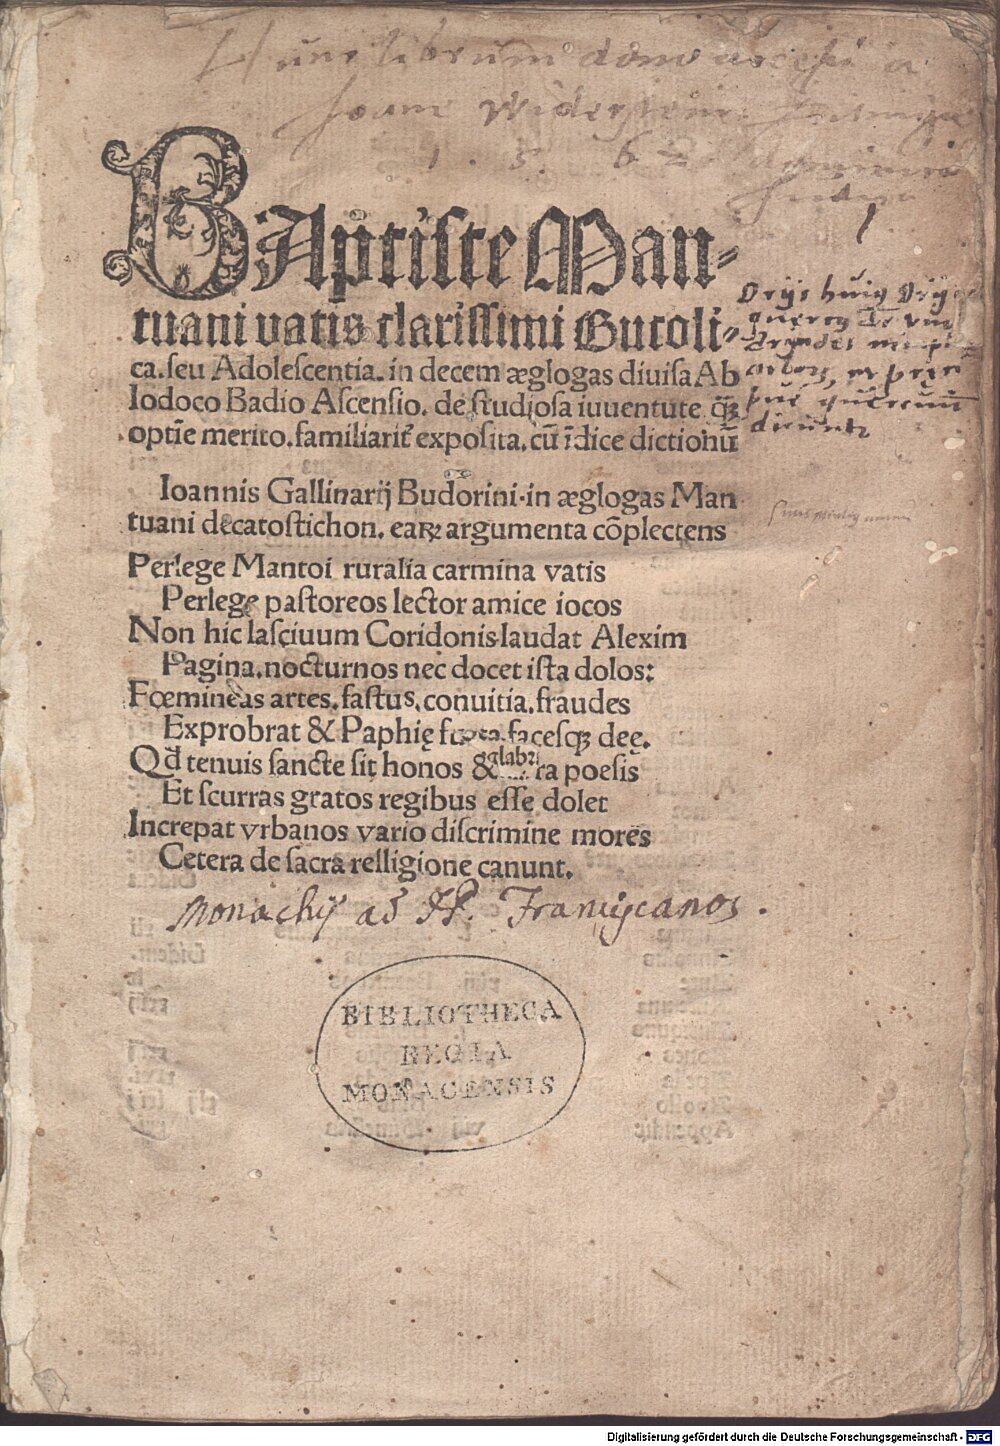 Hunc librum dono accepi a
Joane
1 5 6 2
BAptiste Man⸗
tuani vatis clarissimi Bucoli⸗
ca. seu Adolescentia. in decem æglogas diuisa Ab
Iodoco Badio Ascensio. de studiosa iuuentute q̄ꝫ
optīe merito. familiarit̄ exposita. cū īdice dictionū
Ioannis Gallinarij Budorini. in æglogas Man
tuani decatostichon. earꝝ argumenta cōplectens
Perlege Mantoi ruralia carmina vatis
Perlege pastoreos lector amice iocos
Non hic lasciuum Coridonis laudat Alexim
Pagina. nocturnos nec docet ista dolos:
Fœmineas artes. fastus. conuitia. fraudes
Exprobrat & Paphię facesqꝫ deę.
Qd tenuis sancte sit honos & poesis
Et scurras gratos regibus esse dolet
Increpat vrbanos vario discrimine mores
Cetera de sacra relligione canunt.
Monachij ad PP. Franciscanos.
BIBLIOTHECA
REGIA
MONACENSIS
Digitalisierung gefördert durch die Deutsche Forschungsgemeinschaft - DFG